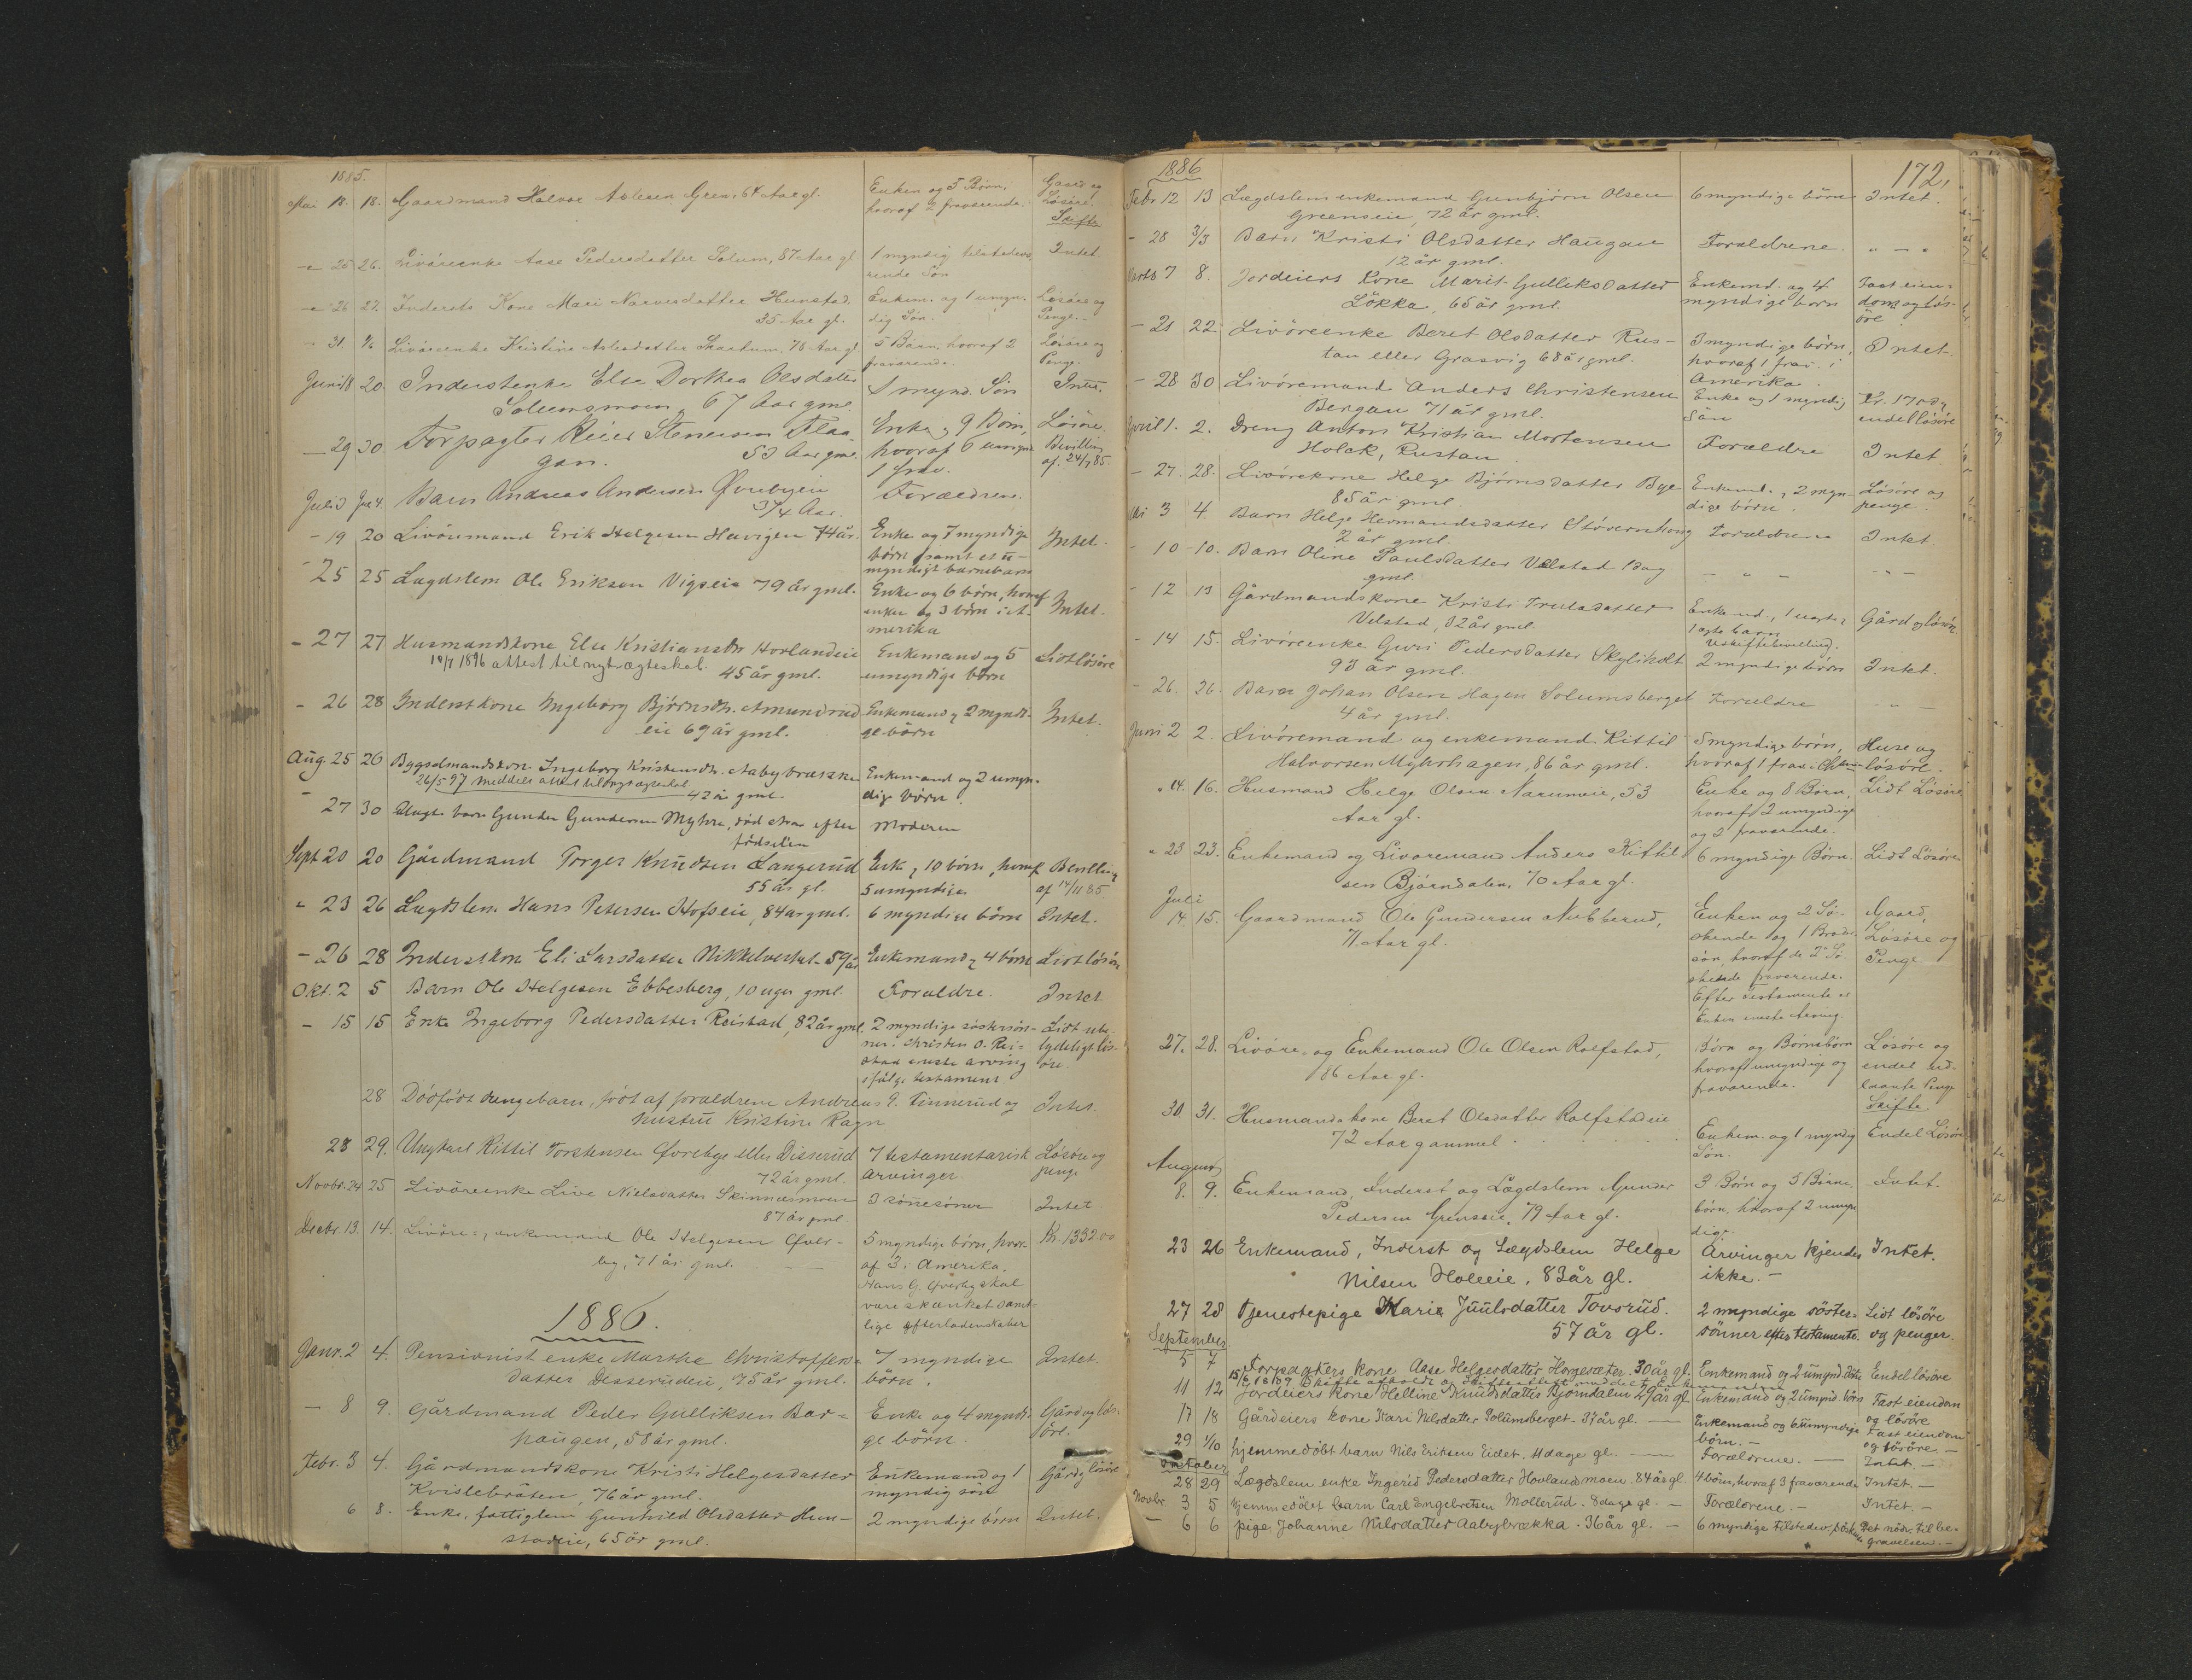 1885.
Mai 18. 18. Gaardmand Halvor Aslesen Gren, 64 Aar gl. Enken og 5 Børn, Gaard og
hvoraf 2 fraværende. Løsøre.
Skifte
- 25 26. Livøreenke Aase Pedersdatter Solum, 87 Aar gl 1 myndig tilstedevæ- Intet.
rende Søn
- 26 27. Inderste Kone Mari Narvesdatter Hunstad. Enkem. og 1 umyn- Løsøre og
35 Aar gl. dig Søn. Penge.
- 31. Livøreenke Kristine Aslesdatter 78 Aar gl 5 Børn, hvoraf 2 Løsøre og
fraværende. Penge.
Juni 18 20. Inderstenke Else Dorthea Olsdatter 1 mynd. Søn Intet.
Solumsmoen, 67 Aar gml.
- 29 30 Forpagter Reier Stenersen Flaa- Enke, 9 Børn, Løsøre.
gan. 53 Aar gml. hvoraf 6 umynd. Bevilling
1 frav. af 24/7 85.
Juli 3 Juli 4. Barn Andreas Andersen Øvrebyeie Forældrene.
3/4 Aar.
- 19 20 Livöremand Erik Helgesen Hervigen 74 år. Enke og 7 myndige Intet.
börn samt et u-
myndigt barnebarn
25 25 Lægdslem Ole Eriksen Vigseie 79 år gml. Enke og 6 börn, hvoraf
enken og 3 börn i A- Intet.
merika
- 27 27 Husmandskone Else Kristiansdtr Horlandeie Enkemand og 5 Lidt lösöre
14/7 1896 attest til nyt ægteskab. 45 år gml. umyndige börn
- 26 28 Inderstkone Ingeborg Björnsdtr. Amundrud- Enkemand, 2 myndi- Intet.
eie 69 år gml. ge börn
Aug. 25 26 Bygselmandskone Ingeborg Kristensdtr. Aabybrække Enkemand og 2 umyn-
26/5 97 meddelt attest til nyt ægteskab 42 år gml. dige börn.
- 27 30 Uægte barn Gunder Gundersen Myhre, död strax efter Moderen
födselen
Sept 20 20 Gårdmand Torger Knudsen Langerud Enke, 10 börn, hvoraf Bevilling
55 år gl. 5 umyndige af 14/11 85
- 23 26 Lægdslem Hans Petersen Hofseie, 84 år gml. 6 myndige börn Intet.
- 26 28 Inderstkone Eli Larsdatter Nikkelverket 59 år Enkemand, 4 börn Lidt lösöre
Okt. 2 5 Barn Ole Helgesen Ebbesberg, 10 uger gml. Forældre. Intet
- 15 15 Enke Ingeborg Pedersdatter Reistad, 82 år gml. 2 myndige söstersön- Lidt ube-
ner. Christen O. Rei- tydeligt lös-
stad eneste arving öre.
ifölge testament.
28 Dödfödt drengebarn, födt af forældrene Andreas P. Tinnerud og Intet.
hustru Kristine Ragn
28 29. Ungkarl Kittil Torstensen Øvrebye eller Disserud 7 testamentarisk Lösöre og
72 år gml. arvinger. penge
Novbr. 24 25 Livöreenke Live Nielsdatter Skinnesmoen 3 sönnesönner Intet
87 år gml
Decbr. 13. 14. Livöre-, enkemand Ole Helgesen Øvre- 5 myndige börn, hvor- Kr. 1332.00
by, 71 år gml. af 3 i Amerika.
Hans G. Øvreby skal
være skænket samt-
lige efterladenskaber
1886.
Janr. 2 4. Pensionist enke Marthe Christoffers- 7 myndige Intet.
datter Disserudeie, 75 år gml. börn.
- 8 9. Gårdmand Peder Gulliksen Bar- Enke og 4 myndi- Gård og lös-
haugen, 58 år gml. ge börn. öre.
Febr. 3 4. Gårdmandskone Kristi Helgesdatter Enkemand og 1 Gård, lösöre
Kvislebråten, 76 år gml. myndig sön
6 8. Enke, fattiglem Gunhild Olsdatter Hun- 2 myndige börn Intet.
stadeie, 65 år gml.
1886 172.
Febr 12 13 Lægdslem enkemand Gunbjörn Olsen 6 myndige börn Intet.
Grenseie, 72 år gml.
- 28 3/3 Barn Kristi Olsdatter Haugan Forældrene. " - "
12 år gml.
Marts 7 8. Jordeiers Kone Marit Gulleksdatter Enkemd. og 4 Fast eien-
Lökka, 65 år gml. myndige börn dom og lös-
öre
- 21 22 Livöreenke Beret Olsdatter Rus- 3 myndige börn, Intet.
tan eller Grasvig 68 år gml. hvoraf 1 frav. i
Amerika.
- 28 30 Livöremand Anders Christensen Enke og 1 myndig Kr. 170 og
Bergan 71 år gml. sön endel lösöre
April 1. 2. Dreng Anton Kristian Mortensen Forældre Intet
Holak, Rustan
- 27. 28. Livörekone Helge Björnsdatter Bye Enkemd., 2 myn- Lösöre og
85 år gml. dige börn. penge.
Mai 3 4. Barn Helge Hermandsdatter Störernhaug Forældrene Intet
2 år gml.
- 10 10. Barn Oline Paulsdatter Velstad 1 dag - " - - " -
gml.
- 12 13 Gårdmandskone Kristi Trulsdatter Enkemd., 1 uægte, Gård og lösöre
Velstad, 32 år gml. 1 ægte barn
Uskiftebevilling.
- 14 15. Livöreenke Guri Pedersdatter Skyliholt 2 myndige börn Intet.
93 år gml.
- 26. 26. Barn Johan Olsen Hagen Solumsberget Forældre " -
4 år gml.
Juni 2 2. Livöremand og enkemand Kittil 5 myndige börn, Huse og
Halvorsen Myhrhagen, 86 år gml. hvoraf 1 frav. i lösöre.
" 14. 16. Husmand Helge Olsen Narumeie, 53 Enke og 8 Børn, Lidt Løsøre
Aar gl. hvoraf 2 umyndige
og 3 fraværende.
" 23 23. Enkemand og Livøremand Anders Kittil- 6 myndige Børn. Lidt Løsøre
sen Bjørndalen, 70 Aar gl.
Juli
14. 15. Gaardmand Ole Gundersen Nubberud, Enken og 2 Sø- Gaard,
71 Aar gl. skende og 1 Broder- Løsøre og
søn, hvoraf de 2 Sø- Penge
skende fraværende.
Efter Testamente er
Enken eneste Arving.
27. 28. Livøre- og Enkemand Ole Olsen Rolfstad, Børn og Børnebørn Løsøre og
86 Aar gl. hvoraf umyndige og endel ud-
fraværende. laante Penge
Skifte
30. 31. Husmandskone Beret Olsdatter Rolfstadeie Enkem. og 1 myndig Endel Løsøre
72 Aar gammel Søn.
August
8. 9. Enkemand, Inderst og Lægdslem Gunder 3 Børn og 5 Børne- Intet.
Pedersen Grenseie, 79 Aar gl. børn, hvoraf 2 umyn-
dige.
23 26 Enkemand, Inderst og Lægdslem Helge Arvinger kjendes Intet.
Nilsen Holeeie, 83 år gl. ikke.-
27 28 Tjenestepige Marie Juulsdatter Tovsrud. 2 myndige söster- Lidt lösöre
57 år gl. sönner efter testamente. og penger.
September
5 7 Forpagters kone Aase Helgesdatter Horgesæter. 30 år gl. Enkemand og 2 umynd. Endel lösöre
11 12 Jordeiers kone Helline Knudsdatter Bjørndalen 29 år gl. Enkemand og 2 umynd. börn Fast eiendom
og lösöre
17 18 Gårdeiers kone Kari Nilsdatter Solumsberget. 37 år gl. - Enkemand og 6 umyndige Fast eiendom
börn.- og lösöre.-
29 1/10 hjemmedöbt barn Nils Eriksen Eidet. 11 dage gl. - Forældrene. - Intet.-
October
28 29 Lægdslem enke Ingerid Pedersdatter Hovlandsmoen. 84 år gl. 4 börn, hvoraf 3 fraværende Intet.-
Novbr 3 5 hjemmedöbt barn Carl Engebretsen Mollerud. 8 dage gl. - Forældrene.- Intet.-
- 6 6 pige Johanne Nilsdatter Aabybrækka. 36 år gl. - 6 myndige tilstedev. söskende Det nödv. til be-
gravelsen.-